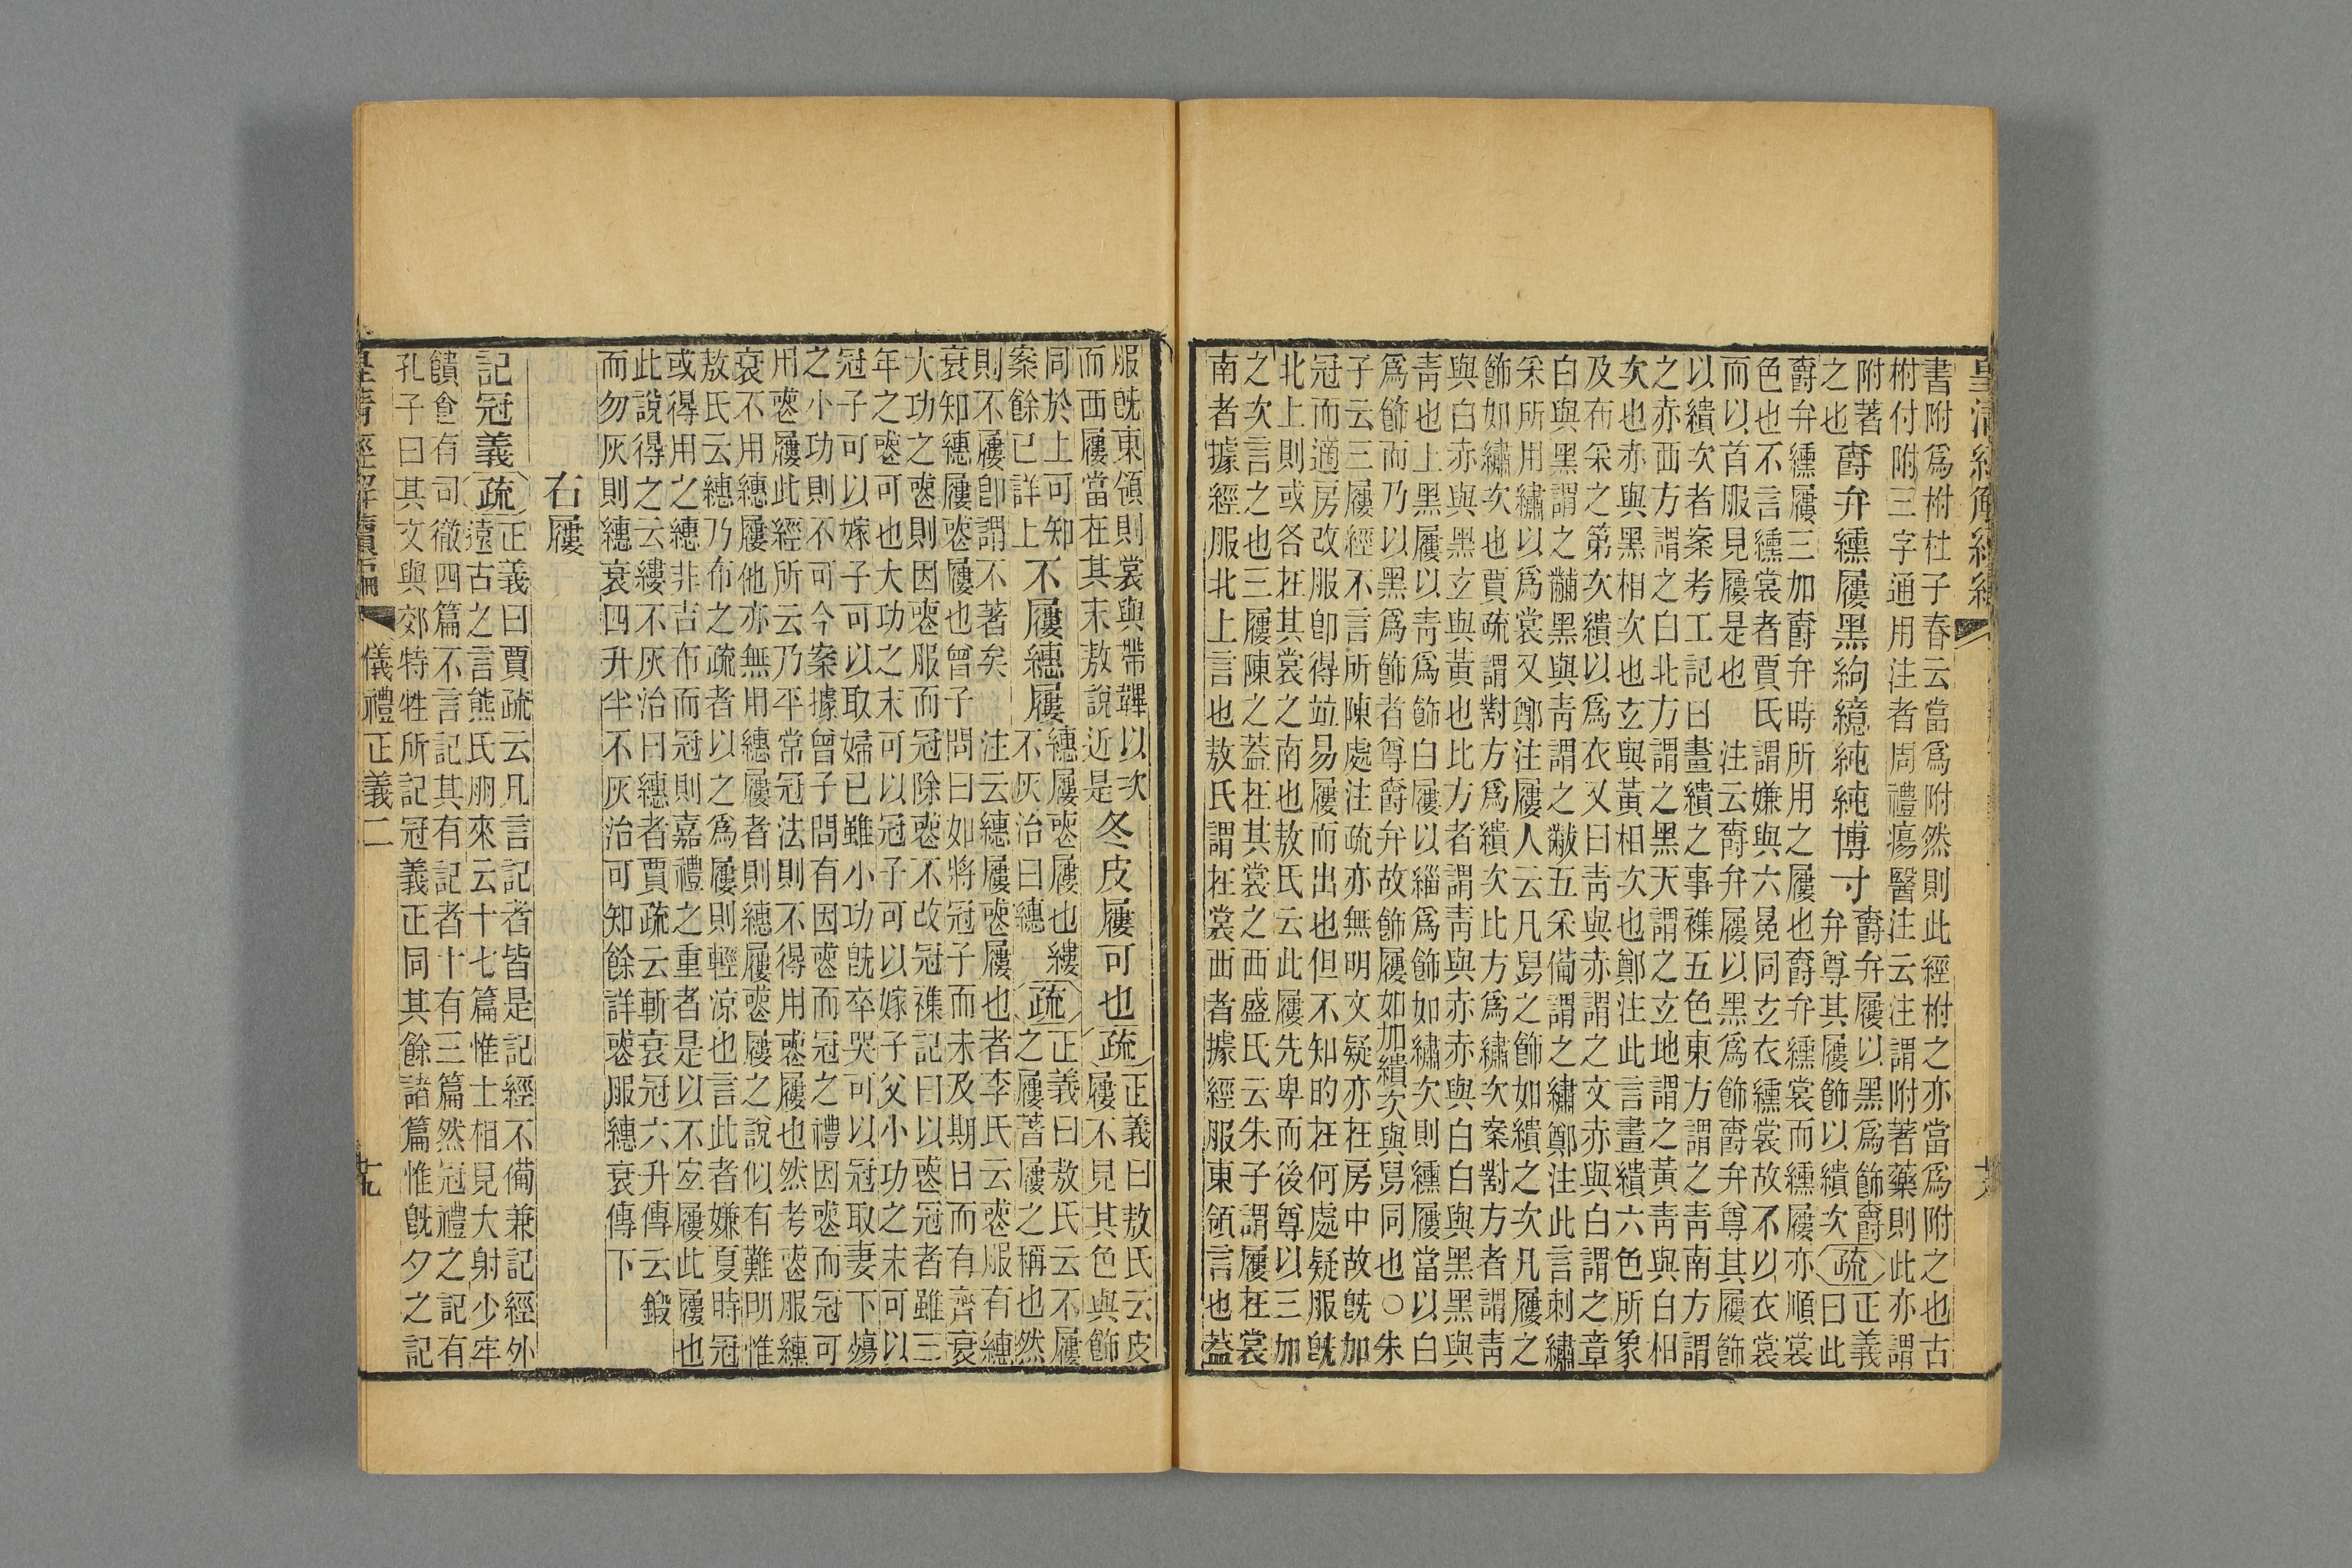 皇清經解續編
書附爲柎杜子春云當爲附然則此經柎之亦當爲附之也古
柎付附三字通用注者周禮瘍醫注云注謂附著藥則此亦謂
附著
之也
爵弁纁屨黑絇繶純純博寸
爵弁屨以黑爲飾爵
弁尊其屨飾以繢次
疏
正義
曰此
爵弁纁屨三加爵弁時所用之屨也爵弁纁裳而纁屨亦順裳
色也不言纁裳者賈氏謂嫌與六冕同玄衣纁裳故不以衣裳
而以首服見屨是也 注云爵弁屨以黑爲飾爵弁尊其屨飾
以繢次者案考工記曰畫繢之事襍五色東方謂之靑南方謂
之赤西方謂之白北方謂之黑天謂之玄地謂之黃靑與白相
次也赤與黑相次也玄與黃相次也鄭注此言畫繢六色所象
及布采之第次繢以爲衣又曰靑與赤謂之文赤與白謂之章
白與黑謂之黼黑與靑謂之黻五采備謂之繡鄭注此言刺繡
采所用繡以爲裳又鄭注屨人云凡舄之飾如繢之次凡屨之
飾如繡次也賈疏謂對方爲繢次比方爲繡次案對方者謂靑
與白赤與黑玄與黃也比方者謂靑與赤赤與白白與黑黑與
靑也上黑屨以靑爲飾白屨以緇爲飾如繡次則纁屨當以白
爲飾而乃以黑爲飾者尊爵弁故飾屨如加繢次與舄同也○朱
子云三屨經不言所陳處注疏亦無明文疑亦在房中故旣加
冠而適房改服卽得竝易屨而出也但不知的在何處疑服旣
北上則或各在其裳之南也敖氏云此屨先卑而後尊以三加
之次言之也三屨陳之蓋在其裳之西盛氏云朱子謂屨在裳
南者據經服北上言也敖氏謂在裳西者據經服東領言也蓋
服旣東領則裳與帶韠以次
而西屨當在其末敖說近是
冬皮屨可也
疏
正義曰敖氏云皮
屨不見其色與飾
同於上可知
案餘已詳上
不屨繐屨
繐屨䘮屨也縷
不灰治曰繐
疏
正義曰敖氏云不屨
之屨菩屨之稱也然
則不屨卽謂不著矣 注云繐屨䘮屨也者李氏云䘮服有繐
衰知繐屨䘮屨也曾子問曰如將冠子而未及期日而有齊衰
大功之䘮則因䘮服而冠除䘮不改冠襍記曰以䘮冠者雖三
年之䘮可也大功之末可以冠子可以嫁子父小功之末可以
冠子可以嫁子可以取婦已雖小功旣卒哭可以冠取妻下殤
之小功則不可今案據曾子問有因䘮而冠之禮因䘮而冠可
用䘮屨此經所云乃平常冠法則不得用䘮屨也然考䘮服繐
衰不用繐屨他亦無用繐屨者則繐屨䘮屨之說似有難明惟
敖氏云繐乃布之疏者以之爲屨則輕涼也言此者嫌夏時冠
或得用之繐非吉布而冠則嘉禮之重者是以不宐屨此屨也
此說得之云縷不灰治曰繐者賈疏云斬衰冠六升傳云鍛
而勿灰則繐衰四升半不灰治可知餘詳䘮服繐衰傳下
右屨
記冠義
疏
正義曰賈疏云凡言記者皆是記經不備兼記經外
遠古之言熊氏朋來云十七篇惟士相見大射少牢
饋食有司徹四篇不言記其有記者十有三篇然冠禮之記有
孔子曰其文與郊特牲所記冠義正同其餘諸篇惟旣夕之記
皇清經解續編
儀禮正義二